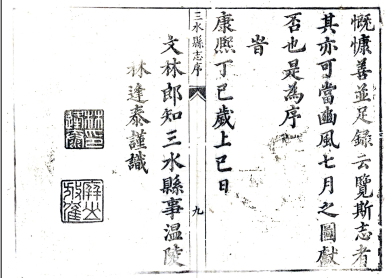 慨慷善並足錄云覽斯志者
其亦可當豳風七月之圖獻
否也是為序
旹
康熙丁巳歲上巳日
三水縣志序
九
文林郎知三水縣事溫陵
林逹泰謹識